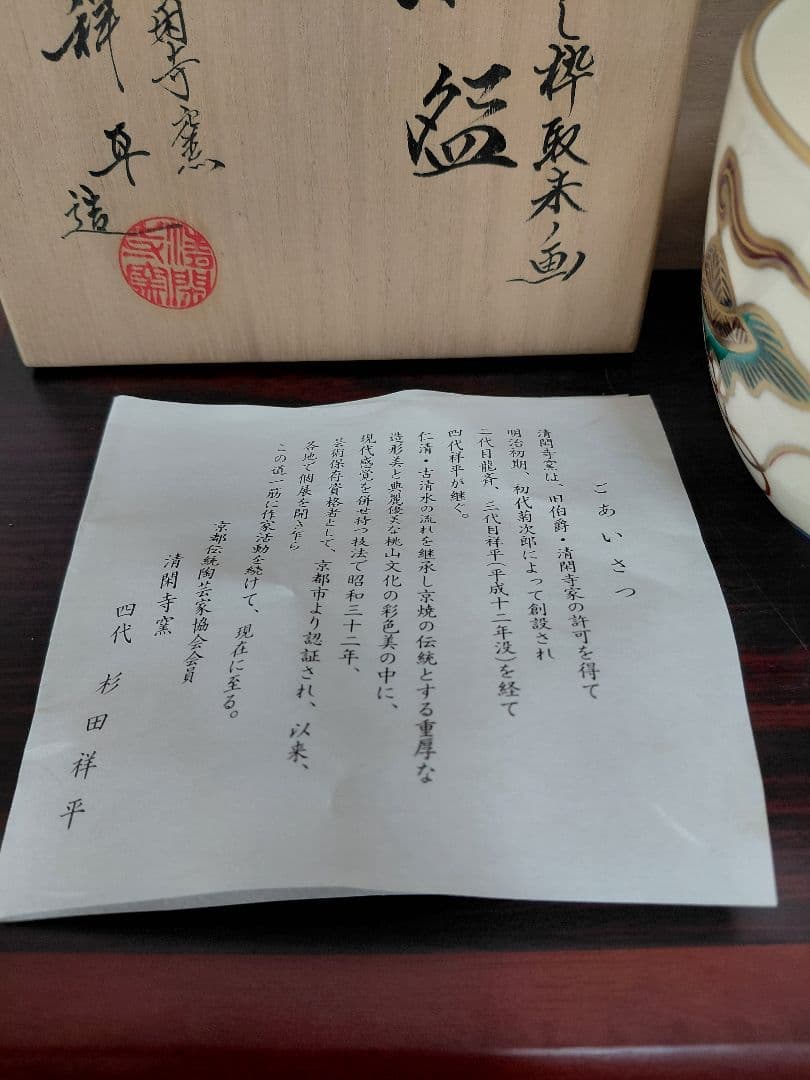 し枠取末ノ画
清閑寺窯
祥平造
ごあいさつ
清閑寺窯は、旧伯爵・清閑寺家の許可を得て
明治初期、初代菊次郎によって創設され
二代目龍斉、三代目祥平(平成十二年没)を経て
四代祥平が継ぐ。
仁清・古清水の流れを継承し京焼の伝統とする重厚な
造形美と典麗優美な桃山文化の彩色美の中に、
現代感覚を併せ持つ技法で昭和三十二年、
芸術保存資格者として、京都市より認証され、以来、
各地で個展を開き乍ら
この道一筋に作家活動を続けて、現在に至る。
京都伝統陶芸家協会会員
清閑寺窯
四代 杉田祥平